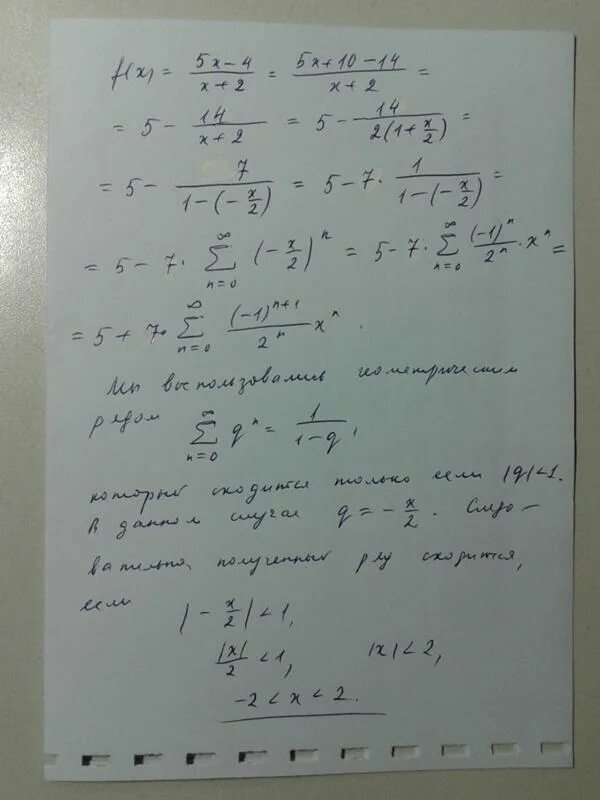 f(x) = (5x-4)/(x+2) = (5x+10-14)/(x+2) =
= 5 - 14/(x+2) = 5 - 14/(2(1+x/2)) =
= 5 - 7/(1-(-x/2)) = 5 - 7 · 1/(1-(-x/2)) =
= 5 - 7 · ∑_{n=0}^{∞} (-x/2)^n = 5 - 7 · ∑_{n=0}^{∞} (-1)^n/2^n · x^n =
= 5 + 7 · ∑_{n=0}^{∞} (-1)^{n+1}/2^n x^n .
Мы воспользовались геометрическим
рядом ∑_{n=0}^{∞} q^n = 1/(1-q),
который сходится только если |q|<1.
В данном случае q = -x/2. Следо-
вательно, полученный ряд сходится,
если |-x/2| < 1,
|x|/2 < 1, |x| < 2,
-2 < x < 2.